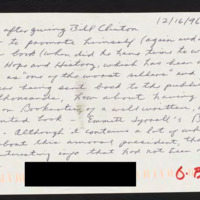 12/16/96
after giving Bill Clinton
to promote himself (again
book (when did he have time to w
Hope and History, which has been
as "one of the worst sellers" and
being sent back to the publish
thousands, how about having
Bookseller of a well written,
look - Emmett Tyrrell's B
. Although it contains a lot of wh
about this amoral president, th
info that had not been
6.